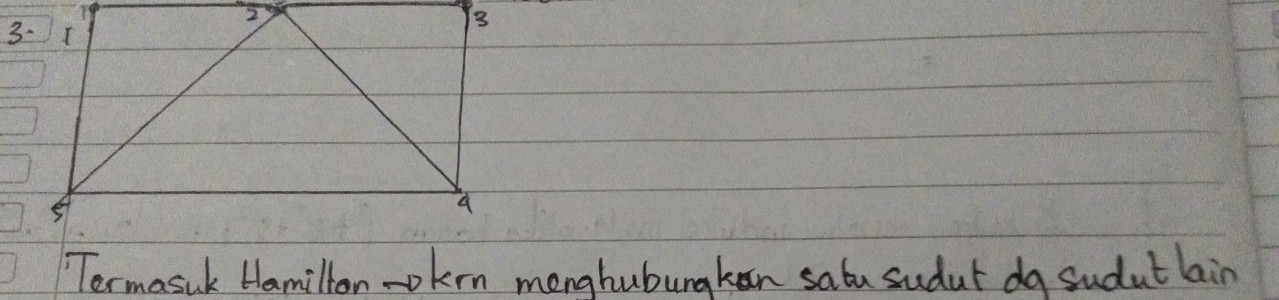 3. 1 2 3
5 4
Termasuk Hamilton → krn menghubungkan satu sudut dg sudut lain